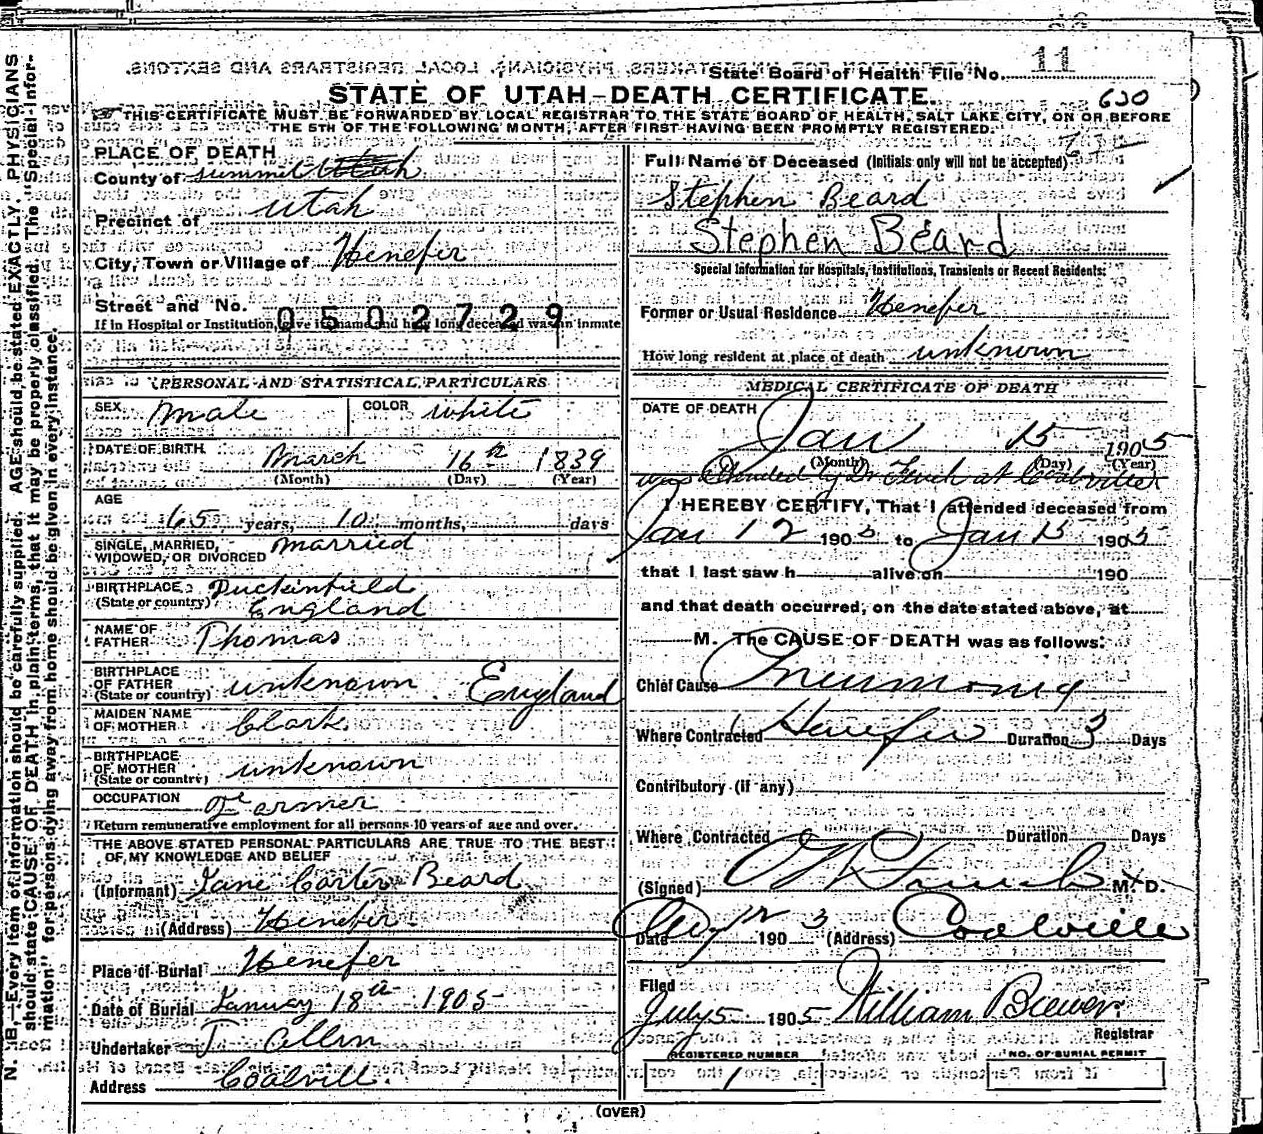 11
State Board of Health File No.
STATE OF UTAH—DEATH CERTIFICATE.
620
THIS CERTIFICATE MUST BE FORWARDED BY LOCAL REGISTRAR TO THE STATE BOARD OF HEALTH, SALT LAKE CITY, ON OR BEFORE
THE 5TH OF THE FOLLOWING MONTH, AFTER FIRST HAVING BEEN PROMPTLY REGISTERED.
N. B.—Every item of information should be carefully supplied. AGE should be stated EXACTLY. PHYSICIANS
should state CAUSE OF DEATH in plain terms, that it may be properly classified. The "Special Infor-
mation" for persons dying away from home should be given in every instance.
PLACE OF DEATH
County of Summit Utah
Precinct of Utah
City, Town or Village of Henefer
Street and No.
0502729
If in Hospital or Institution, give its name and how long deceased was an inmate
PERSONAL AND STATISTICAL PARTICULARS
SEX Male COLOR White
DATE OF BIRTH March 16th 1839
(Month) (Day) (Year)
AGE
65 years, 10 months, days
SINGLE, MARRIED,
WIDOWED, OR DIVORCED Married
BIRTHPLACE Duckinfield
(State or country) England
NAME OF
FATHER Thomas
BIRTHPLACE
OF FATHER
(State or country) unknown. England
MAIDEN NAME
OF MOTHER Clark
BIRTHPLACE
OF MOTHER
(State or country) unknown
OCCUPATION Farmer
Return remunerative employment for all persons 10 years of age and over.
THE ABOVE STATED PERSONAL PARTICULARS ARE TRUE TO THE BEST
OF MY KNOWLEDGE AND BELIEF
(Informant) Jane Carter Beard
(Address) Henefer
Place of Burial Henefer
Date of Burial January 18th 1905
Undertaker J Allen
Address Coalvill.
Full Name of Deceased (Initials only will not be accepted)
Stephen Beard
Stephen Beard
Special Information for Hospitals, Institutions, Transients or Recent Residents:
Former or Usual Residence Henefer
How long resident at place of death unknown
MEDICAL CERTIFICATE OF DEATH
DATE OF DEATH
Jan 15 1905
(Month) (Day) (Year)
was attended by Dr at Coalville
I HEREBY CERTIFY, That I attended deceased from
Jan 12 1905 to Jan 15 1905
that I last saw h alive on 190
and that death occurred, on the date stated above, at
M. The CAUSE OF DEATH was as follows:
Chief Cause Pneumonia
Where Contracted Henefer Duration 3 Days
Contributory (if any)
Where Contracted Duration Days
(Signed) M. D.
Date 190 (Address) Coalville
Filed
July 5 1905 William Brewer
Registrar
REGISTERED NUMBER NO. OF BURIAL PERMIT
1
(OVER)